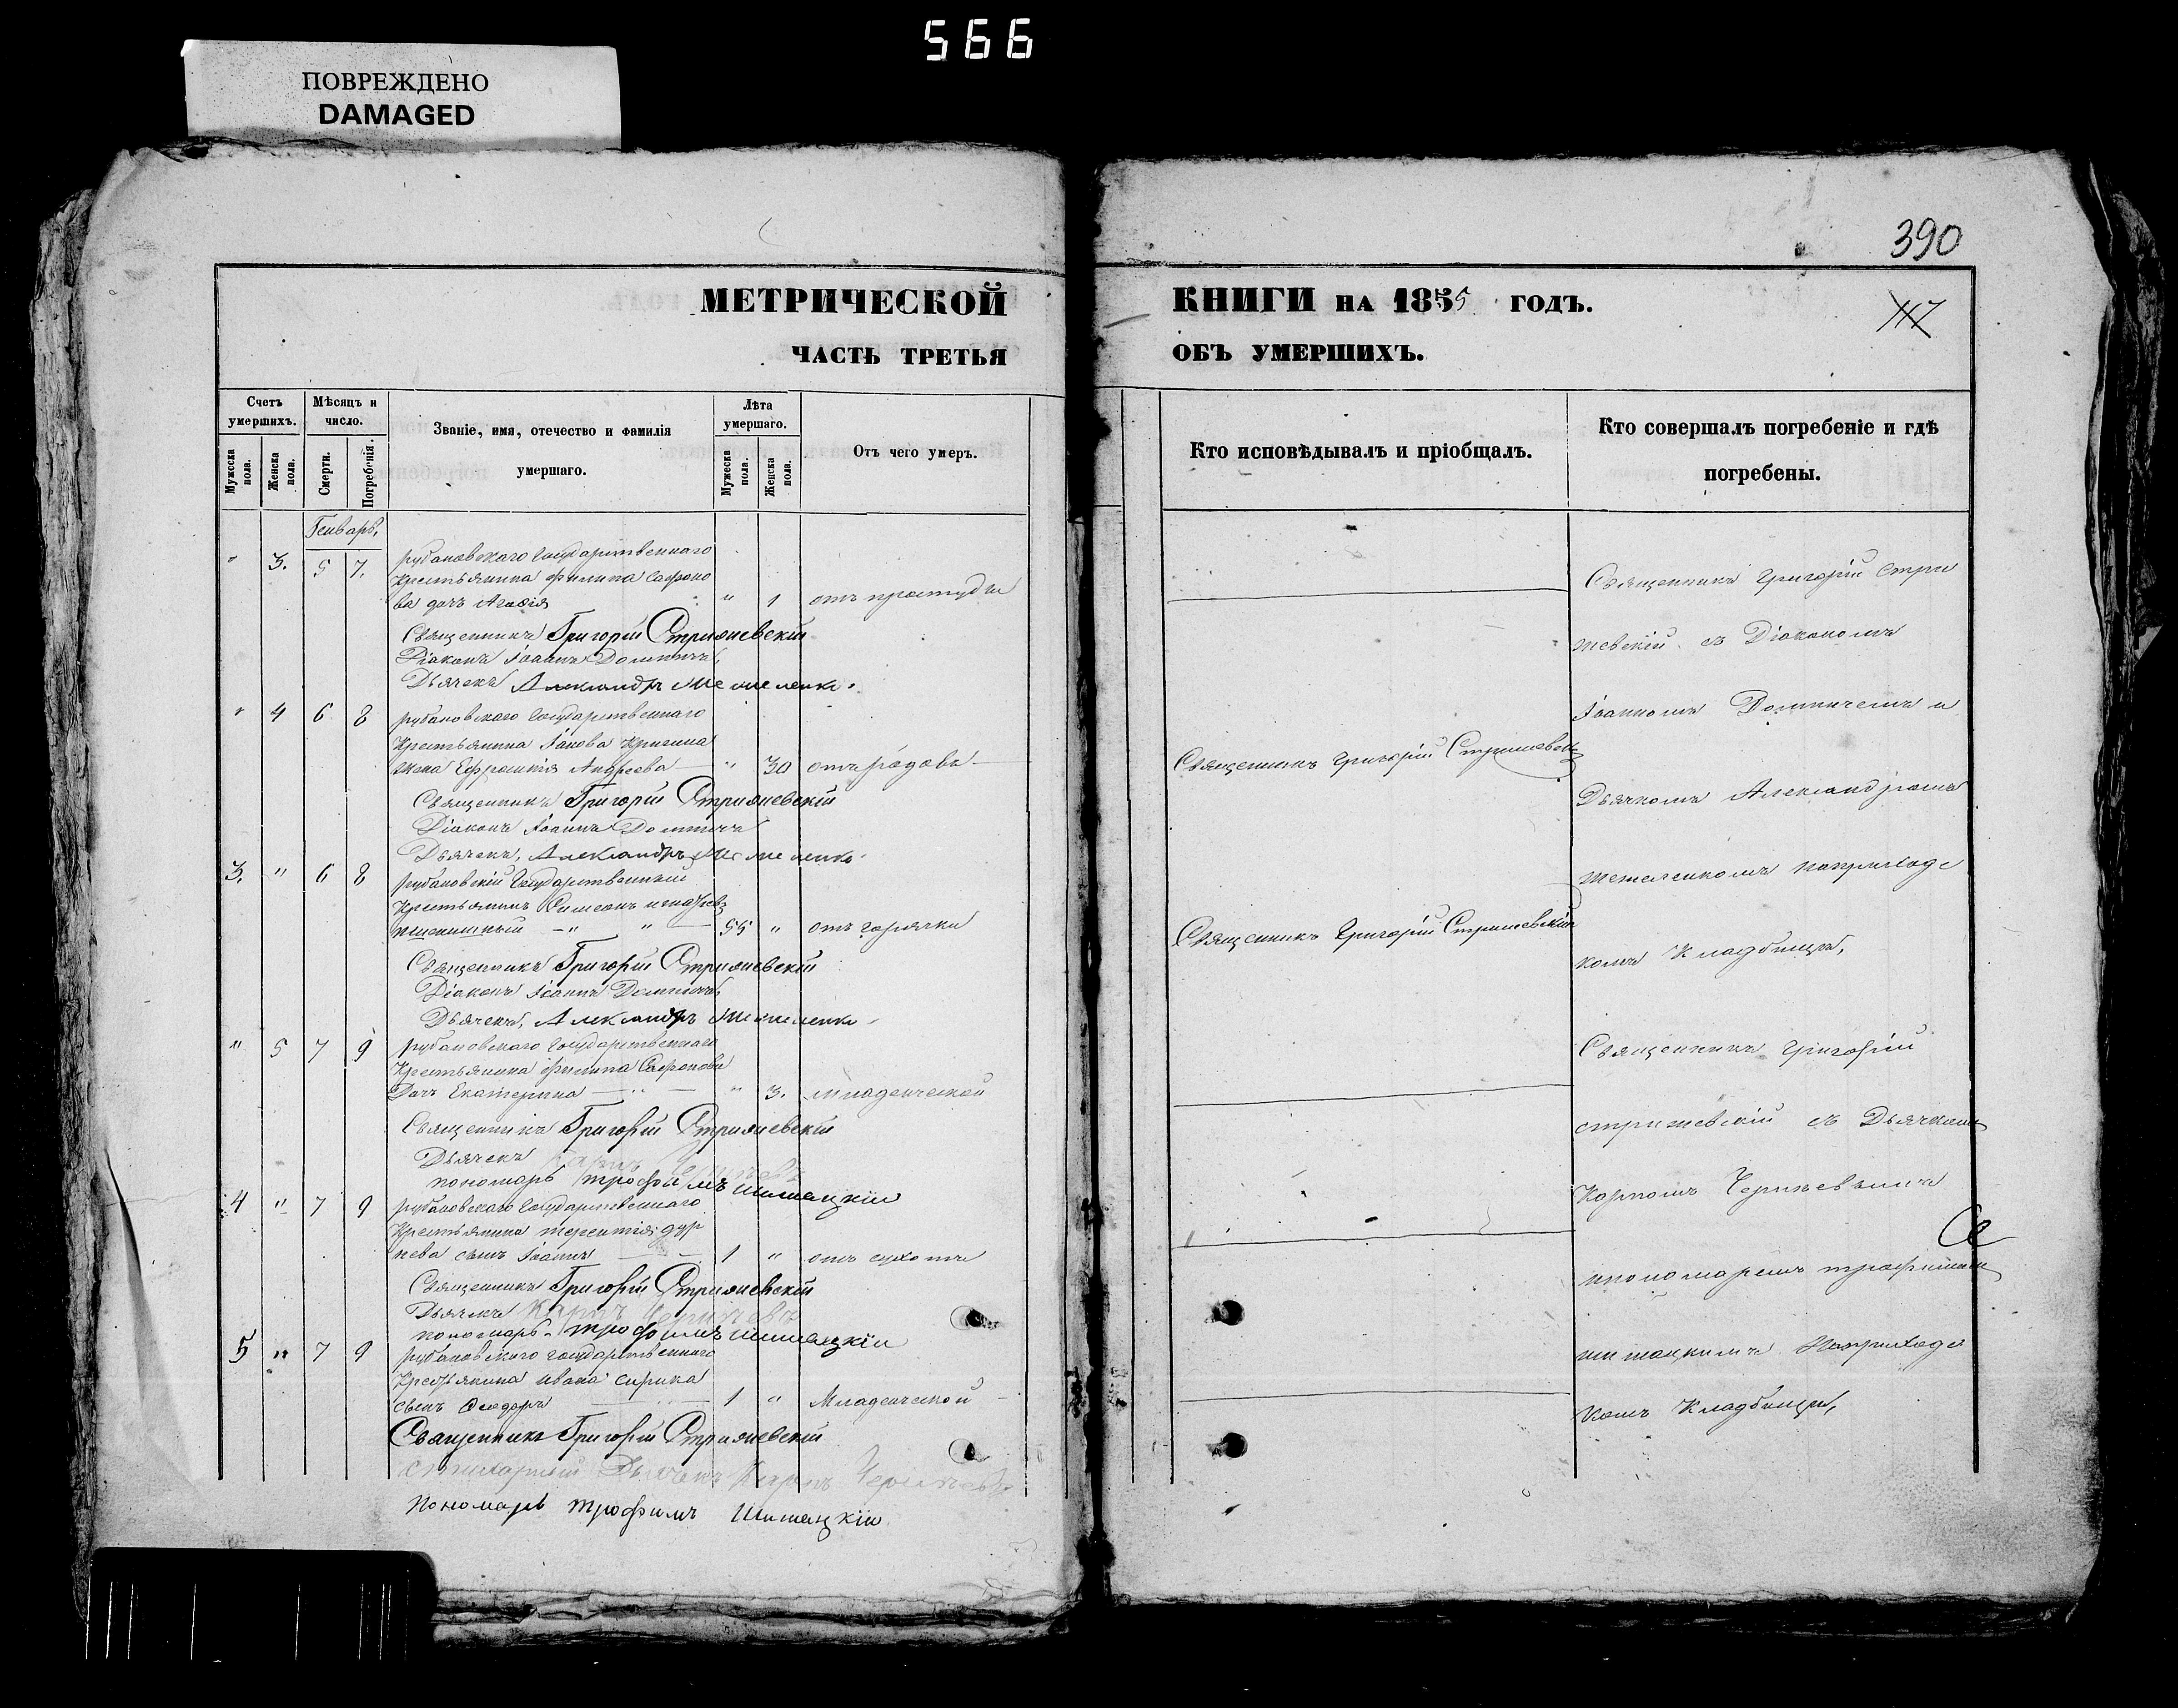 566
ПОВРЕЖДЕНО
DAMAGED
390
117
МЕТРИЧЕСКОЙ КНИГИ НА 1855 ГОДЪ.
ЧАСТЬ ТРЕТЬЯ ОБЪ УМЕРШИХЪ.
Счетъ умершихъ.
Мужеска пола.
Женска пола.
Мѣсяцъ и число.
Смерти.
Погребенія.
Званіе, имя, отечество и фамилія
умершаго.
Лѣта умершаго.
Мужеска пола.
Женска пола.
Отъ чего умеръ.
Кто исповѣдывалъ и пріобщалъ.
Кто совершалъ погребеніе и гдѣ
погребены.
Генварь.
" 3. 5 7. рубановскаго Государственнаго
Крестьянина филипа Сафоно
ва дочь Агафія " 1 отъ простуды
Священникъ Григорій Стрижевскій
Діаконъ Іоаннъ
Дьячекъ Александръ
" 4 6 8 рубановскаго Государственнаго
Крестьянина Іакова
жена Ефросинія Андреева " 30 отъ родовъ
Священникъ Григорій Стрижевскій
Діаконъ Іоаннъ
Дьячекъ, Александръ
3. " 6 8 рубановскій Государственный
Крестьянинъ Симеонъ
55 " отъ горячки
Священникъ Григорій Стрижевскій
Діаконъ Іоаннъ
Дьячекъ, Александръ
" 5 7 9 рубановскаго Государственнаго
Крестьянина филипа Сафонова
Дочь Екатерина " 3. младенческой
Священникъ Григорій Стрижевскій
Дьячекъ Карпъ
пономарь трофимъ Шишацкіи
4 " 7 9 рубановскаго Государственнаго
Крестьянина терентія дур
нева сынъ Іоаннъ 1 " отъ сухоты
Священникъ Григорій Стрижевскій
Дьячекъ Карпъ
пономарь трофимъ шишацкіи
5 " 7 9 рубановскаго государственнаго
Крестьянина ивана сирика
сынъ Феодоръ 1 " Младенческой
Священникъ Григорій Стрижевскій
Дьячекъ Карпъ
Пономарь трофимъ Шишацкіи
Священникъ Григорій Стрижевскій
Священникъ Григорій Стрижевскій
Священникъ Григорій Стри
жевскій съ Діакономъ
Іоанномъ и
Дьячкомъ Александромъ
наприходс
комъ Кладбищѣ,
Священникъ Григорій
стрижевскій съ Дьячкомъ
Карпомъ
ипономаремъ трофимомъ
шишацкимъ Наприходс
комъ Кладбищѣ,